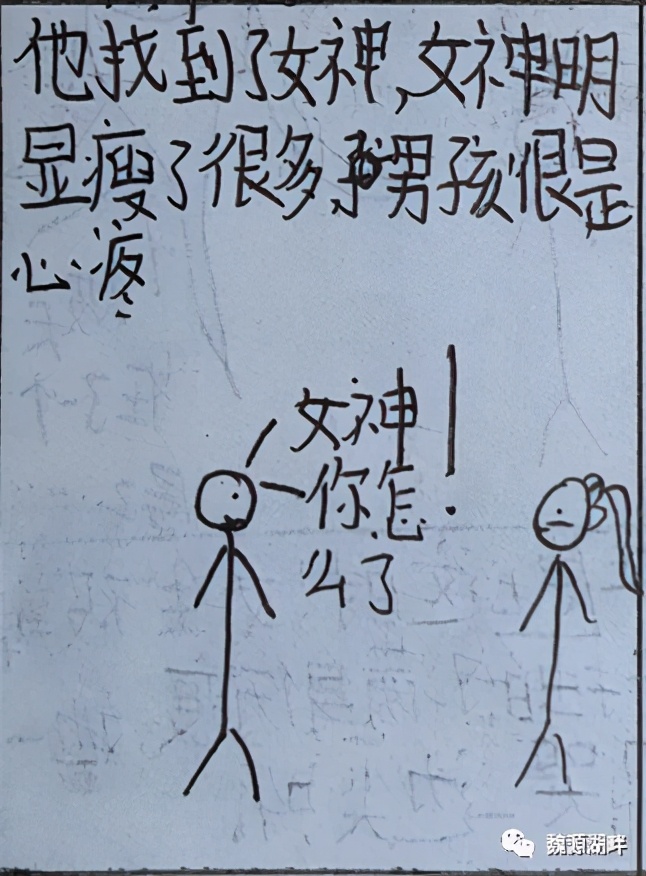 他找到了女神,女神明
显瘦了很多,男孩很是
心疼
女神
你怎
么了!
魏颈湖畔